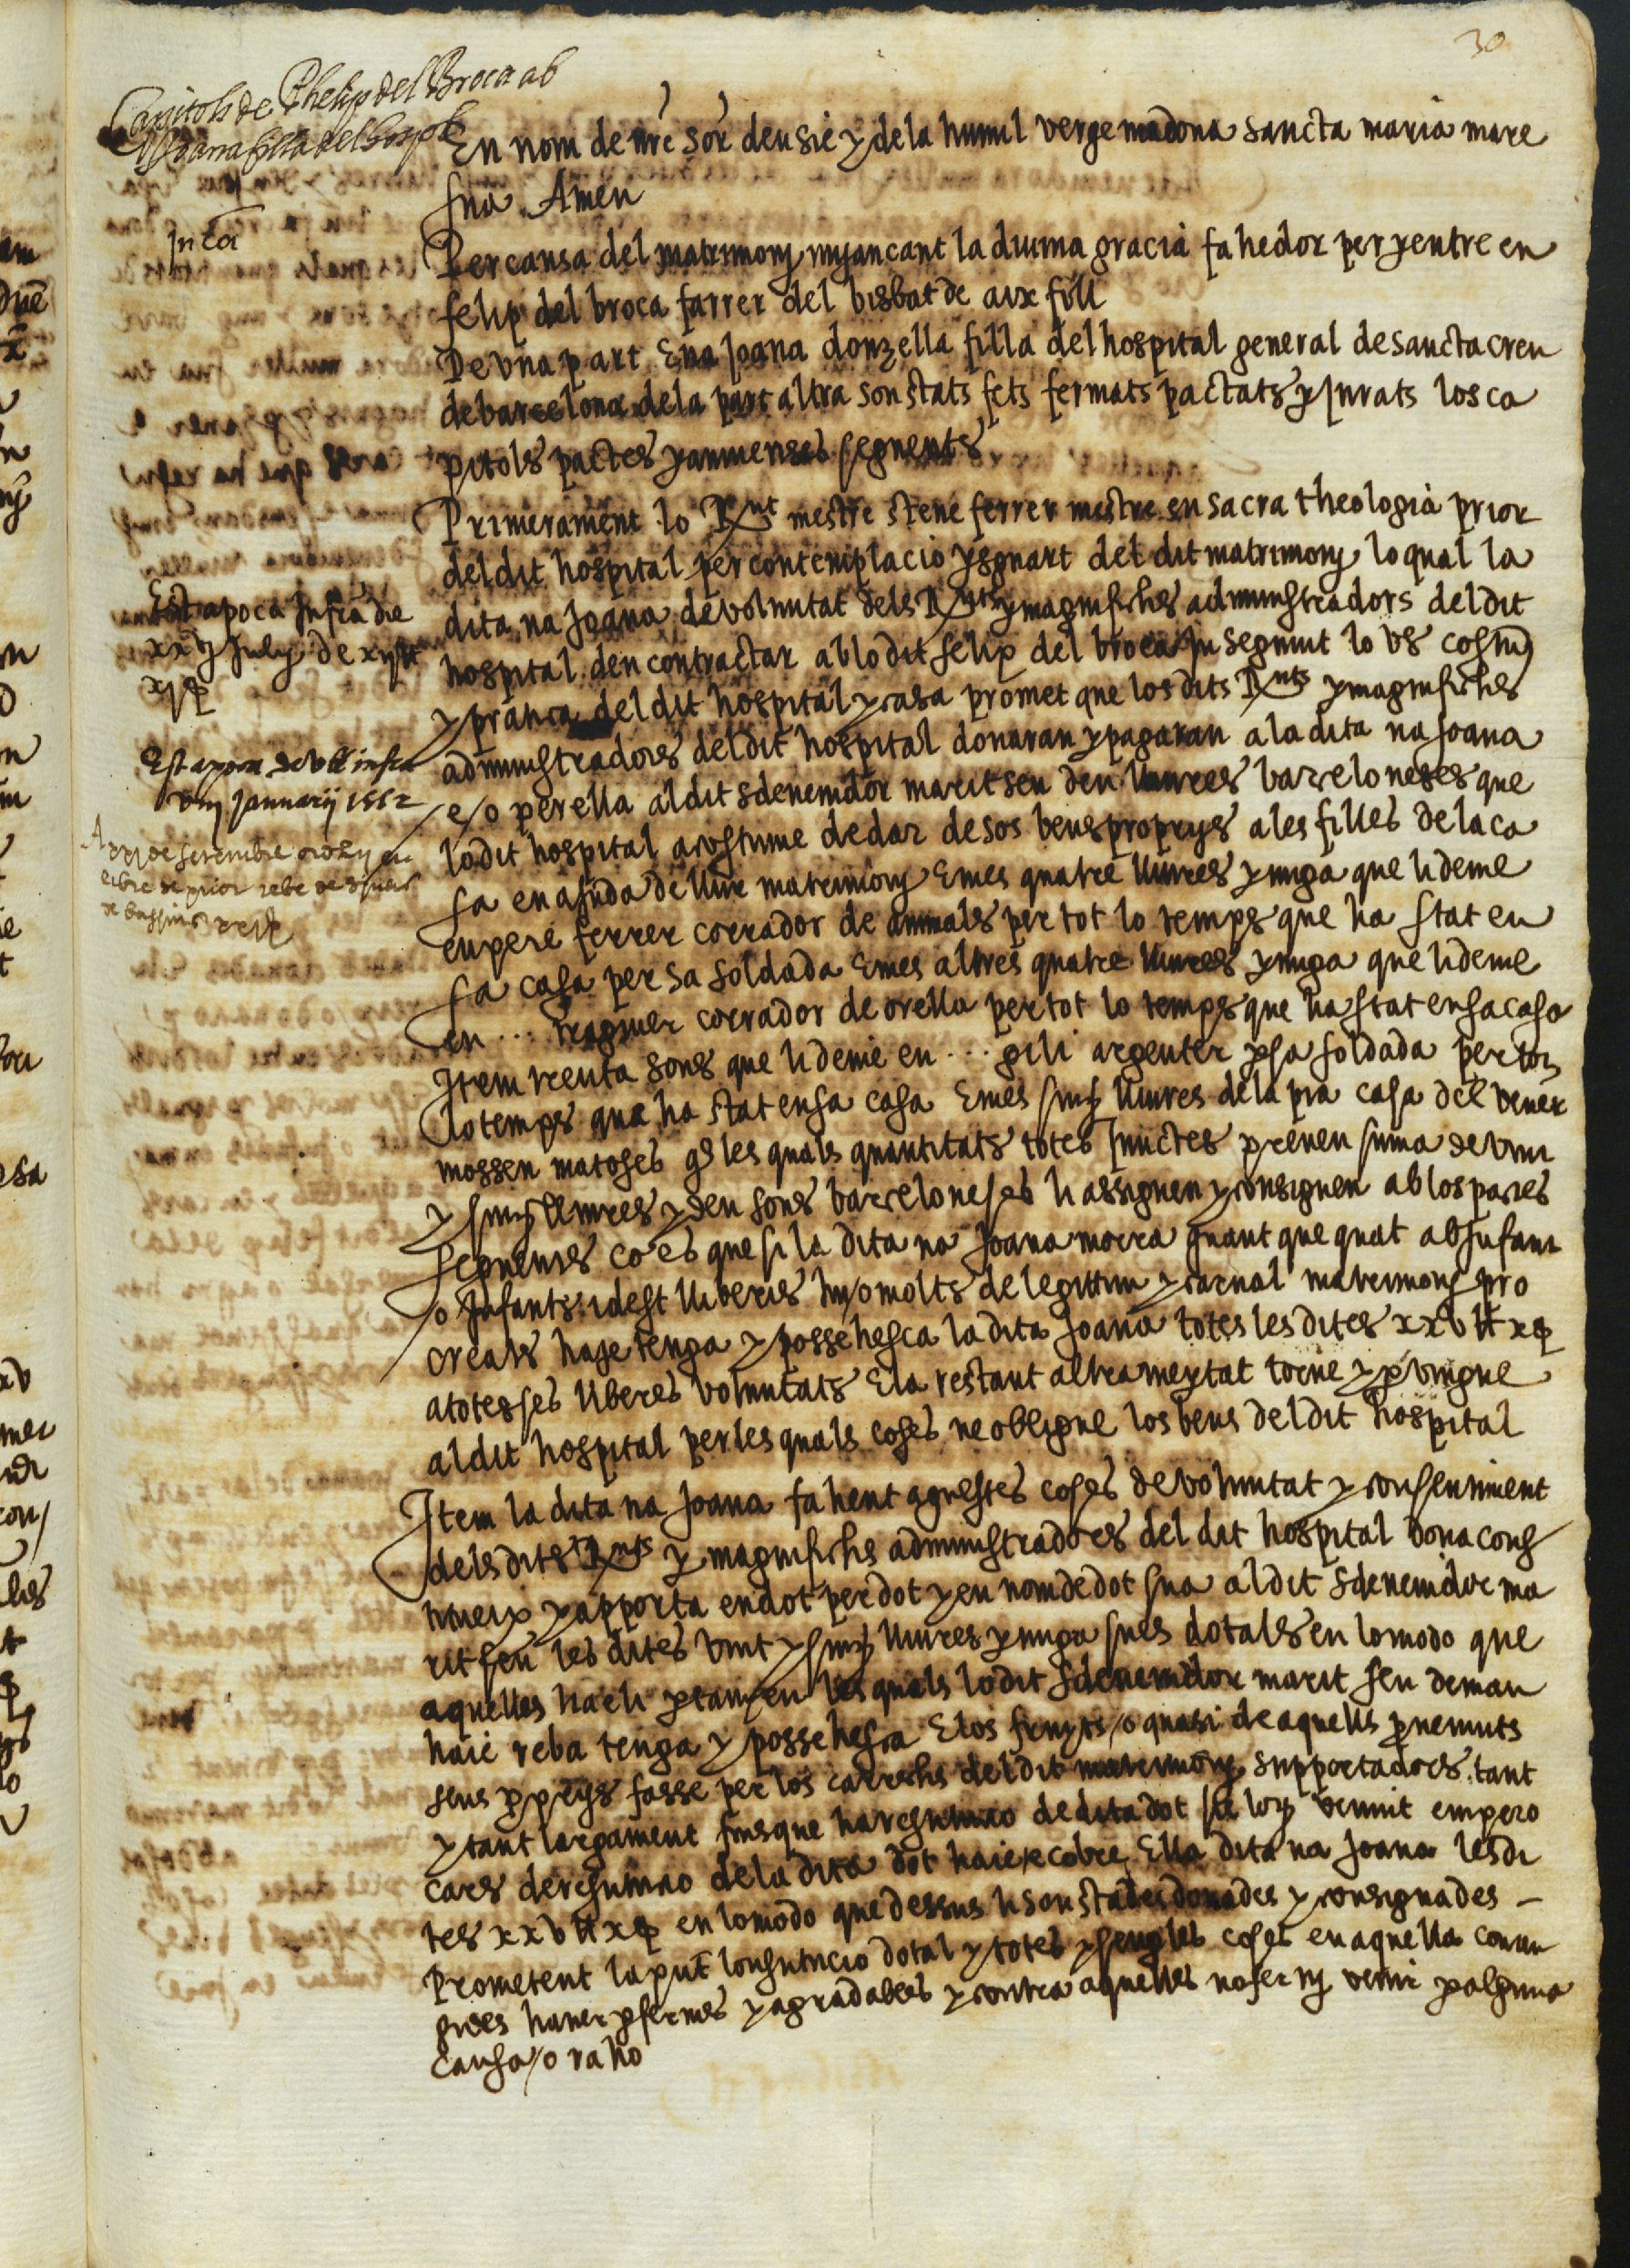 30
Capitols de Phelip del Broca ab
Joana filla del hospital
En nom de nre sor deu sie y de la humil verge madona sancta maria mare
sua . Amen
In ca
Per causa del matrimony mijancant la diuina gracia fahedor per y entre en
felip del broca farrer del bisbat de aix fill
De vna part E na Joana donzella filla del hospital general de sancta creu
de barcelona de la part altra son stats fets fermats pactats y Jurats los ca
pitols pactes y auinenses seguents
Primerament lo Rnt mestre steue ferrer mestre en sacra theologia prior
del dit hospital per contemplacio y sguart del dit matrimony lo qual la
dita na Joana de voluntat dels Rnts y magnifichs administradors del dit
hospital deu contractar ab lo dit felip del broca In seguint lo vs costum
y pratica del dit hospital y casa promet que los dits Rnts y magnifichs
administradors del dit hospital donaran y pagaran a la dita na Joana
e/o per ella al dit sdeuenidor marit seu deu lliures barceloneses que
lo dit hospital acostume de dar de sos bens proprys a les filles de la ca
sa en aiuda de llur matrimony E mes quatre lliures y miga que li deme
en pere ferrer corrador de animals per tot lo temps que ha stat en
sa casa per sa soldada E mes altres quatre lliures y miga que li deme
en ... traginer corrador de orella per tot lo temps que ha stat en sa casa
Item trenta sous que li deme en ... gili argenter p sa soldada per tot
lo temps que ha stat en sa casa E mes sinch lliures de la pia casa del vener
mossen matoses qs les quals quantitats totes Iunctes prenen suma de vint
y sinch lliures y deu sous barceloneses li assignen y consignen ab los pactes
seguents co es que si la dita na Joana morra quant que quat ab Infant
o Infants idest lliberis hu/o molts de legittim y carnal matrimony pro
creats haie tenga y possehesca la dita Joana totes les dites xxv ll x s
a totes ses liberes voluntats E la restant altra meytat torne y p vingue
al dit hospital per les quals coses ne obligue los bens del dit hospital
Item la dita na Joana fahent aquestes coses de voluntat y consentiment
dels dits Rnts y magnifichs administradors del dit hospital dona cons
titueix y apporta en dot per dot y en nom de dot sua al dit sdeuenidor ma
rit seu les dites vint y sinch lliures y miga sues dotals en lo modo que
aquelles ha eli ptanyen les quals lo dit sdeuenidor marit seu deman
haie reba tenga y possehesca E los fruyts/o quasi de aquells p uenints
seus p prys fasse per los carrechs del dit matrimony supportadors tant
y tant largament fins que ha restitucio de dita dot sie loch venint empero
cars de restitucio de la dita dot haie recobre Ella dita na Joana les di
tes xxv ll x s en lo modo que dessus li son stades donades y consignades -
Prometent la put constitucio dotal y totes y sengles coses en aquella contin
gudes hauer p fermes y agradables y contra aquelles no fer ny venir p alguna
causa/o raho
Est apoca Infra die
xxvj July
Est apoca de v ll infra
viij Januarij 1562